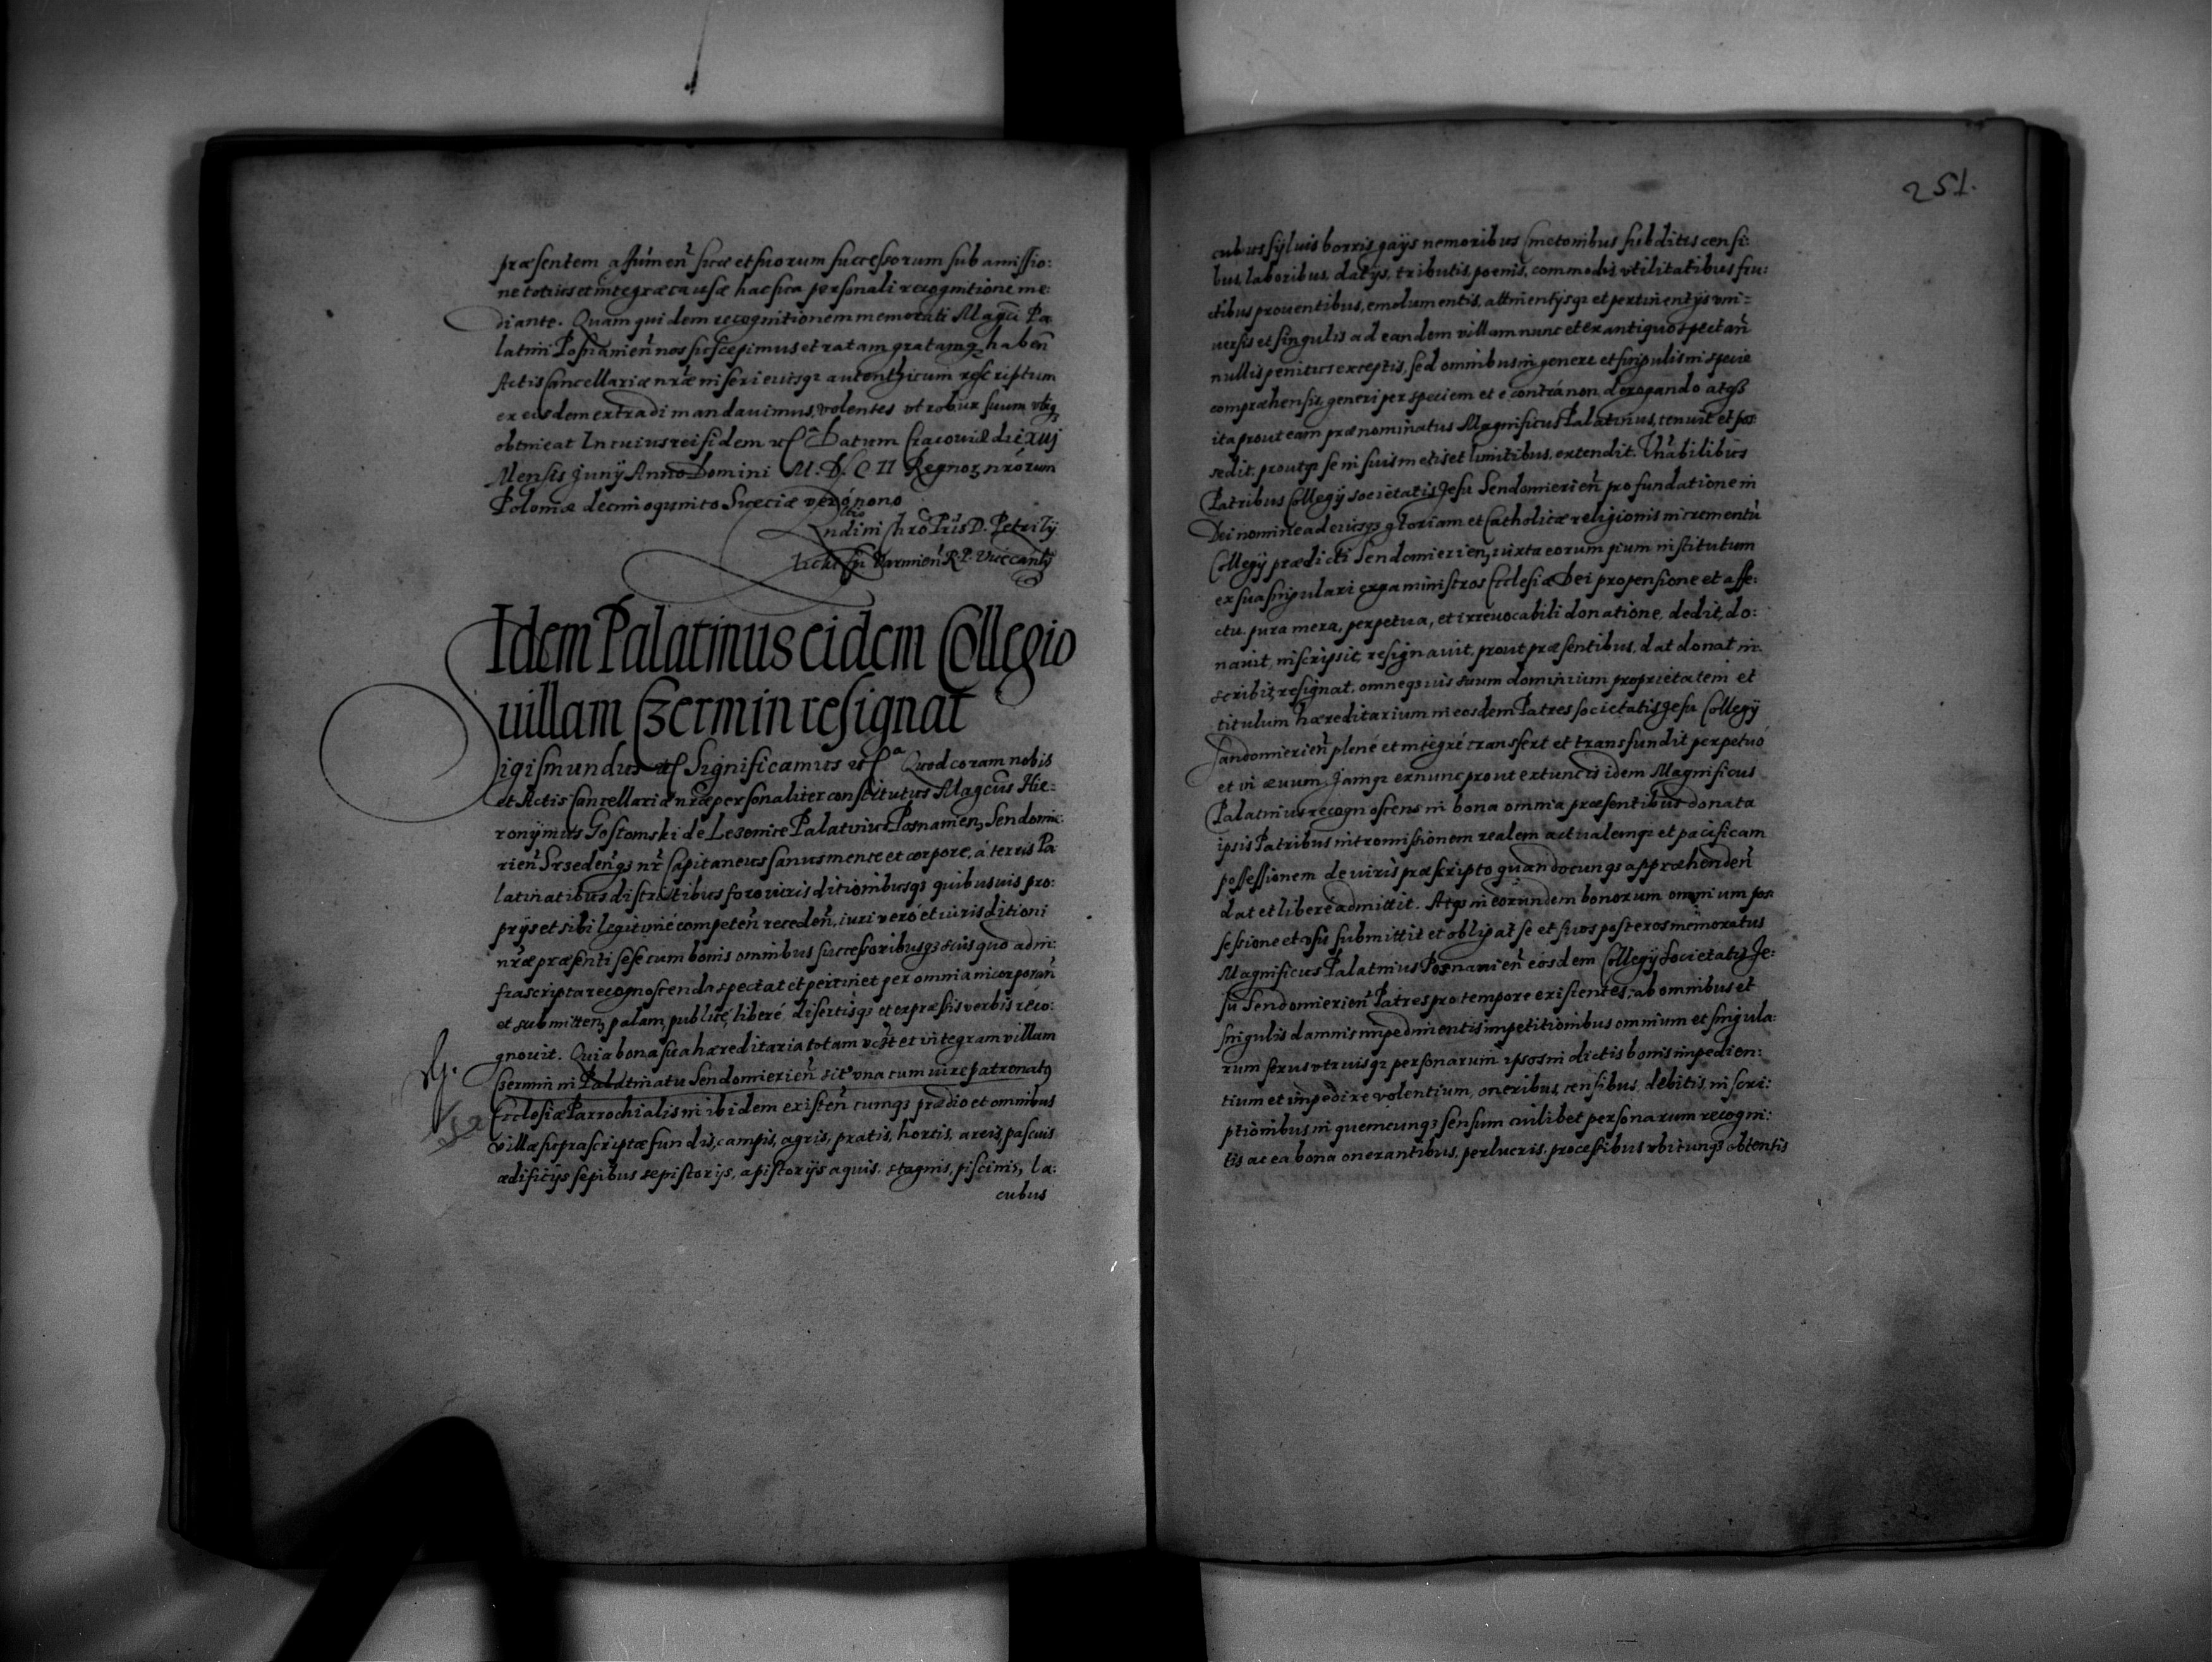 præsentem assumeñ suæ et suorum successorum sub amissio:
ne totius et integræ causæ hac sua personali recognitione me:
diante. Quam quidem recognitionem memorati Magci Pa
latini Posnanieñ nos suscepimus et ratam gratamq3 habeñ
Actis Cancellariæ nræ inseri eiusq3 autenthicum rescriptum
ex eisdem extradi mandauimus, volentes vt robur suum vbiq3
obtineat In cuius rei fidem etc Datum Cracouiæ die xuj
Mensis Junij Anno Domini M.D.C II Regnor3 nrórum
Poloniæ decimoquinto Sueciæ veró nono
Rndi in Chro Pris D. Petri Tÿ
licki Epi Varmień R.P. Vicecanlÿ
Idem Palatinus eidem Collegio
uillam Czermin resignat
Sigismundus etc Significamus etc Quod coram nobis
et Actis Cancellariæ nræ personaliter constitutus Magcus Hie:
ronÿmus Gostomski de Lezenice Palatinus Posnamień, Sendomi:
rień Srsedeńq3 nr Capitaneus sanus mente et corpore, á terris Pa
latinatibus districtibus foro iuris ditionibusq3 quibusuis pro:
prÿs et sibi legitimé competeñ recedeñ, iuri veró et iurisditioni
nræ præsenti sese cum bonis omnibus successoribusq3 suis quo ad in:
frascripta recognoscenda spectat et pertinet per omnia incorporań
et submitteñ, palam, publicé, liberé, disertisq3 et expræssis verbis reco:
gnouit. Quia bona sua hæreditaria totam vczt et integram villam
Czermin in Palatinatu Sendomierień sitã vna cum iure patronatq
Ecclesiæ Parrochialis in ibidem existeñ cumq3 prædio et omnibus
villæ suprascriptæ fundis, campis, agris, pratis, hortis, areis, pascuis
ædificijs sepibus sepistorijs, apistorijs aquis, stagnis, piscinis, la:
cubus
251.
cubus sÿluis borris gaijs nemoribus Cmetonibus subditis censi:
bus, laboribus, datijs, tributis, poenis, commodis, vtilitatibus fru:
ctibus prouentibus, emolumentis, attinentijsq3 et pertinentijs vni=
uersis et singulis ad eandem villam nunc et ex antiquo spectań
nullis penitus exceptis, sed omnibus in genere et singulis in specie
compræhensis, generi per speciem et e contrá non derogando atq3
ita prout eam prænominatus Magnificus Palatinus, tenuit et pos
sedit, proutq3 se in suis metis et limitibus, extendit. Vnabilibus
Patribus Collegij societatis Jesu Sendomierień pro fundatione in
Dei nomine ad eiusq3 gloriam et Catholicæ religionis incrementũ
Collegij prædicti Sendomierień, iuxta eorum pium institutum
ex sua singulari erga ministros Ecclesiæ Dei propensione et affe:
ctu. pura mera, perpetua, et irreuocabili donatione, dedit, do:
nauit, inscripsit, resignauit, prout præsentibus, dat donat in:
scribit, resignat, omneq3 ius suum dominium proprietatem et
titulum hæreditarium in eosdem Patres societatis Jesu Collegij
Sandomierień plené et integré transfert et transfundit perpetuó
et in æuum. Jamq3 ex nunc prout ex tunc is idem Magnificus
Palatinus recognoscens in bona omnia præsentibus donata
ipsis Patribus intromissionem realem actualemq3 et pacificam
possessionem de iuris præscripto quandocunq3 appræhendeñ
dat et liberé admittit. Atq3 in eorundem bonorum omnium pos
sessione et vsu submittit et obligat se et suos posteros memoratus
Magnificus Palatinus Posnanień eosdem Collegij Societatis Je:
su Sendomierień Patres pro tempore existentes, ab omnibus et
singulis damnis impedimentis impetitionibus omnium et singula:
rum sexus vtriusq3 personarum ipsos in dictis bonis impedien:
tium et impedire volentium, oneribus, censibus, debitis, inscri:
ptionibus in quemcunq3 sensum cuilibet personarum recogni:
tis ac ea bona onerantibus, perlucris, processibus vbicunq3 obtentis